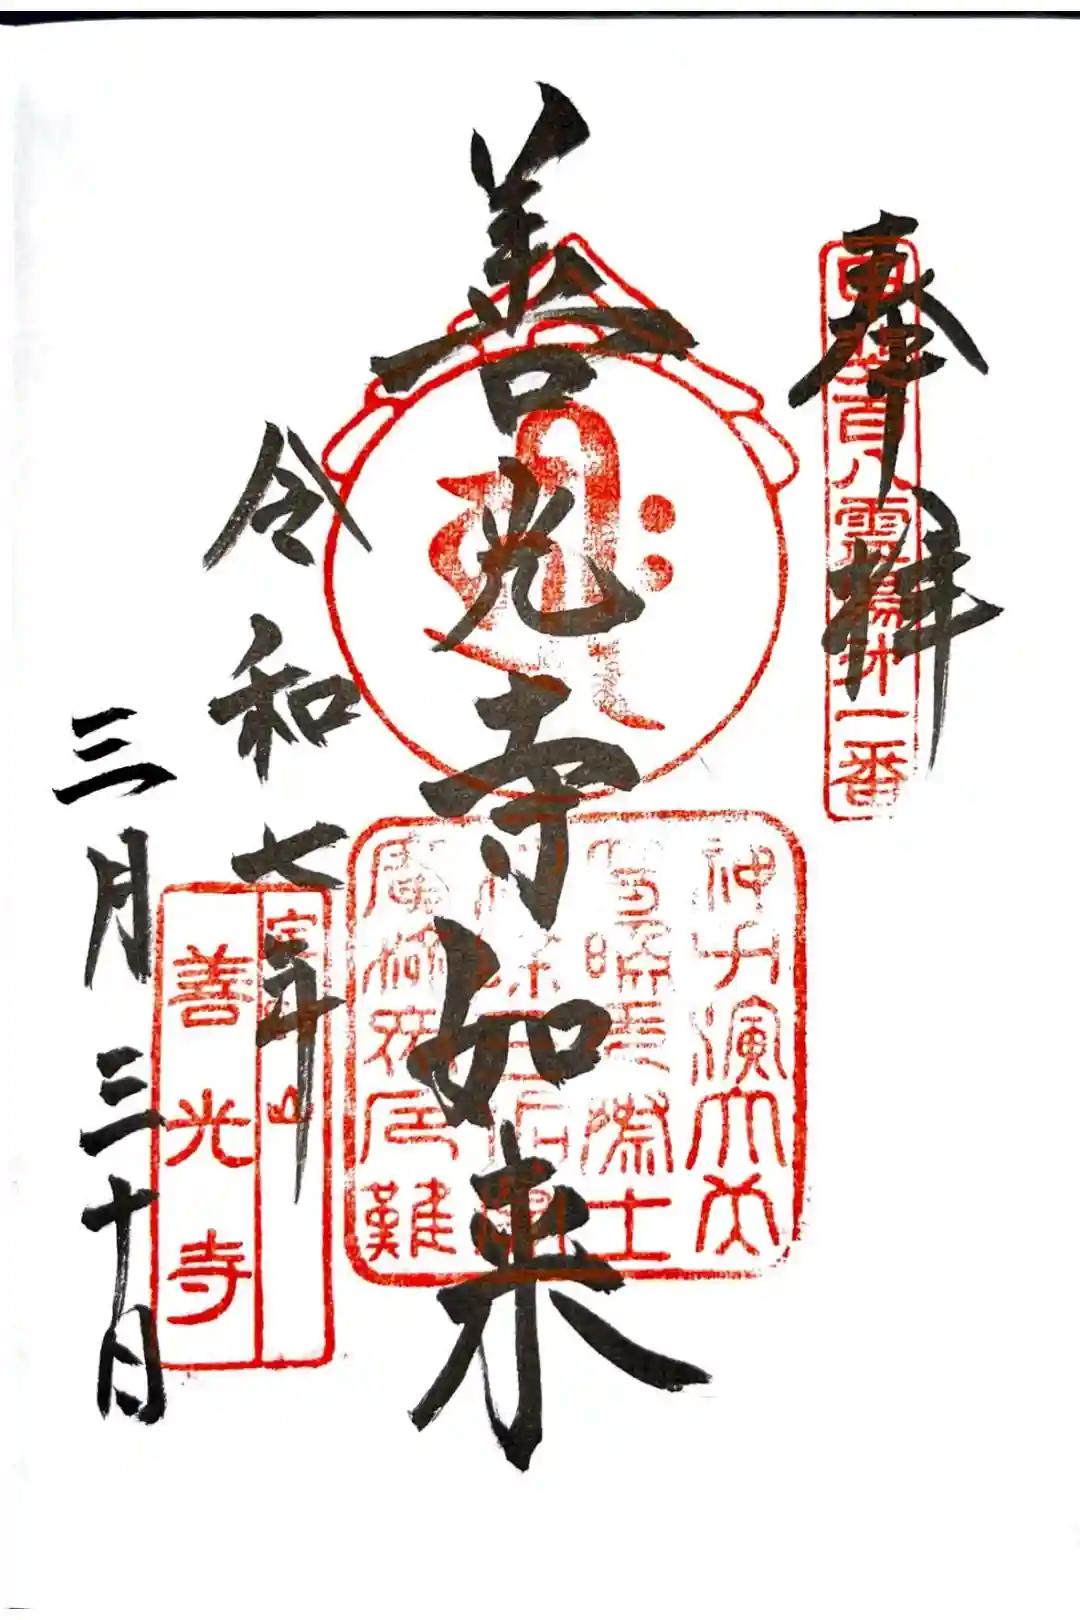 奉拝
百八霊場
一番
善光寺如来
神力演大光
普照无際土
消除三垢冥
廣濟衆厄難
令和七年
三月三十日
定額山
善光寺